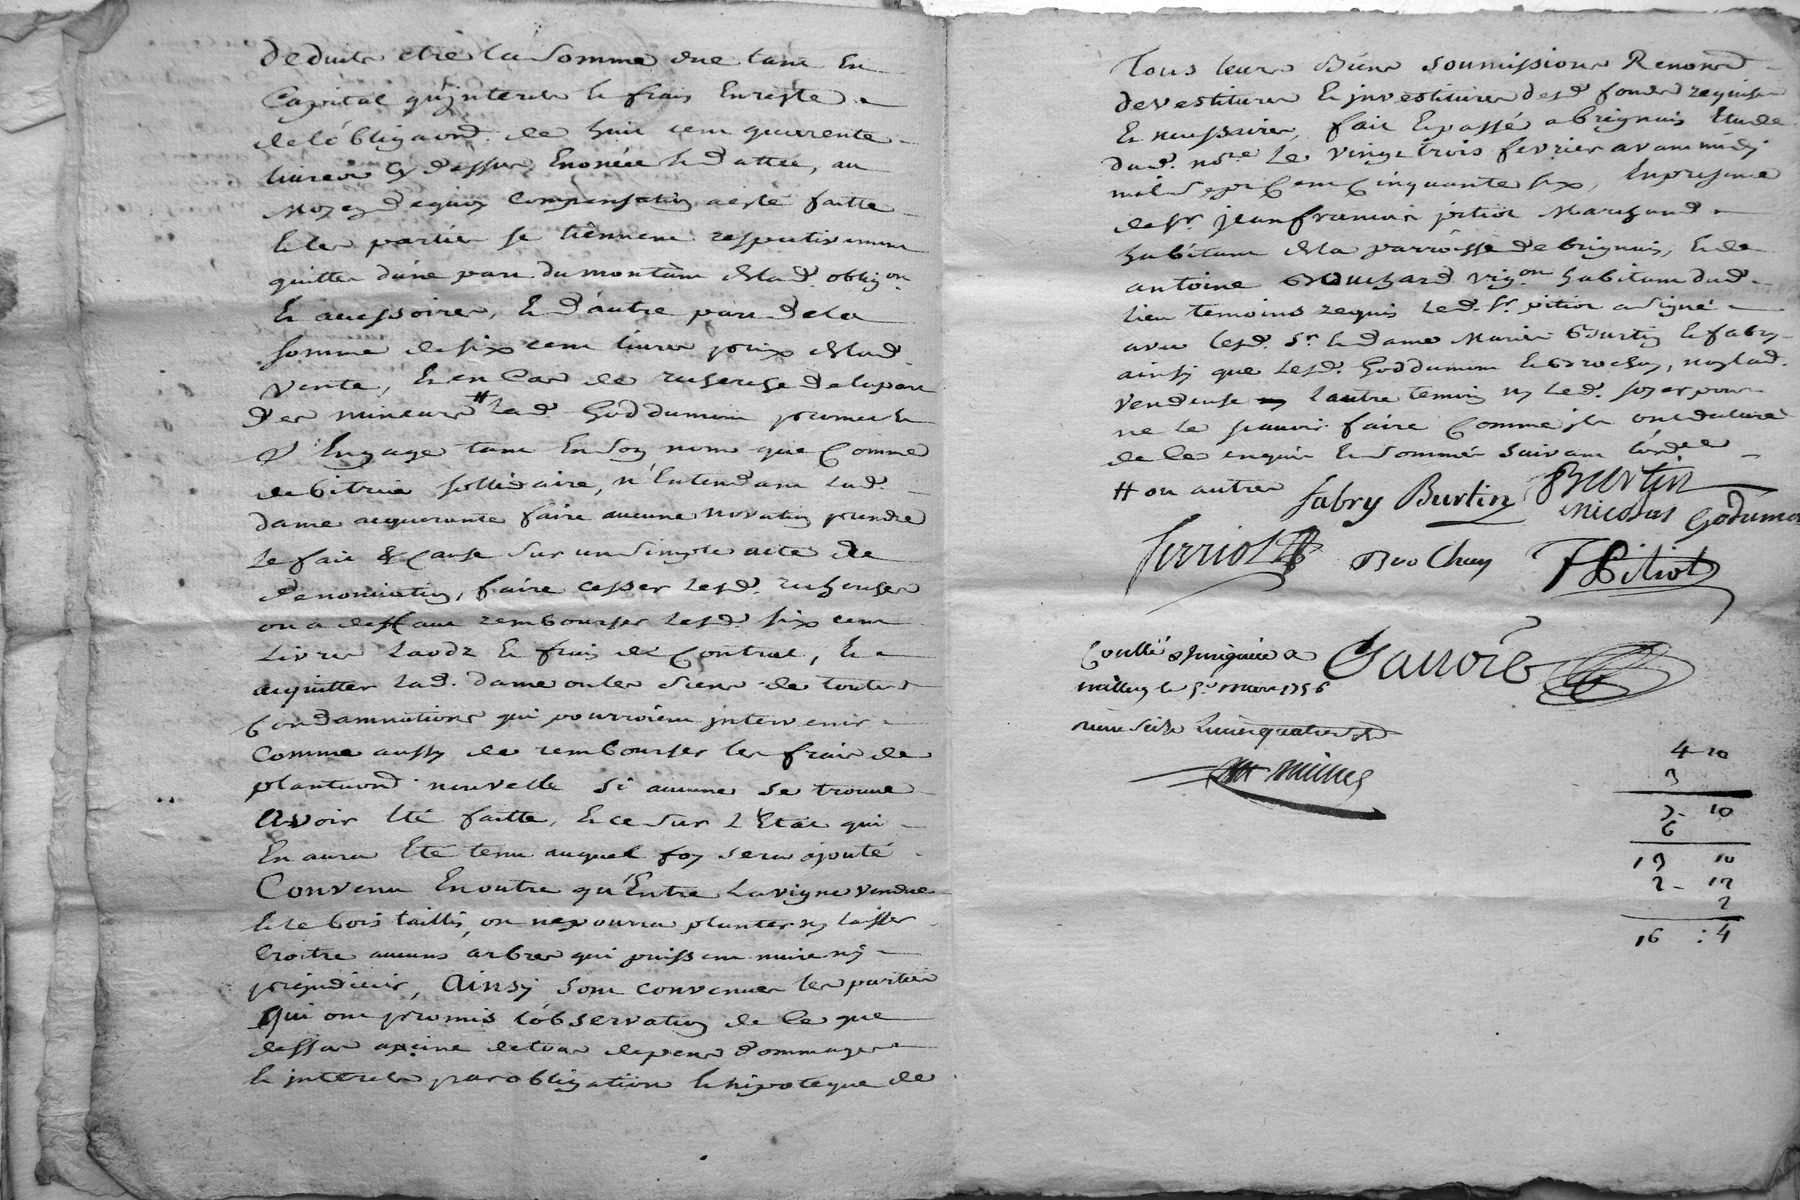 deduite etre la somme due tant en
Capital qu'interets et frais Enreste
de l'obligaond. de huit cent quarente
livres cy dessus Enoncée et dattée, au
Moyen dequoy Compensation a esté faitte
et les parties se tiennent respectivement
quittes d'une part du montant de lad. obligon.
Et accessoires, Et d'autre part de la
somme de six cent livres prix de lad.
Vente, Et en Cas de recherche de la part
des mineurs # lad. Goddumom promet et
s'Engage tant En son nom que Comme
debitrice sollidaire, n'Entendant lad.
dame acquerante faire aucune novation prendre
le fait & Cause sur un simple acte de
denonciation, faire cesser lesd. recherches
ou a deffaut rembourser lesd. six cent
Livres Laodz Et frais de Contrat, Et
acquitter lad. dame ou les siens de toutes
Condamnations qui pourroient intervenir
Comme aussy de rembourser les frais de
plantaond nouvelle si aucune se trouve
Avoir Eté faitte, Et ce sur l'Etat qui
En aura Eté tenu auquel foy sera ajouté
Convenu Enoutre qu'Entre La vigne vendue
et le bois taillis, on ne pourra planter ny laisser
Croitre aucuns arbres qui puissent nuire ny
prejudicier, Ainsy sont convenues les parties
Qui ont promis l'observation de Ce que
dessus a peine de tous depens dommages
et interets par obligation et hipoteque de
Tous leurs Biens soumissions Renond
devestitures Et investitures desd. fonds requises
Et necessaires, fait Et passé a brignais Etude
dud. nore Le vingt trois fevrier avant midy
mil sept Cent Cinquante six, En presence
de Sr. jean francois pitiot Marchand
habitant de la parroisse de brignais, Et de
antoine Bouchard vigon habitant dud.
lieu temoins requis Led. Sr. pitiot a signé
avec lesd. Sr. et dame Marie Burtin et fabry
ainsy que lesd. Goddumom et Brochay, non lad.
Vendeuse l'autre temoin ny led. pour
ne le scavoir faire Comme ils ont declaré
de Ce enquis Et sommés suivant l'ordce
# ou autres fabry Burtin Burtin
nicolas Godumom
ferriol Bro Chay J F Pitiot
Conllé & a Sauvoir
millery le 5e mars 1756
seize Livres quatre sols

4 10
3
7- 10
6
13 10
2- 12
2
16 : 4